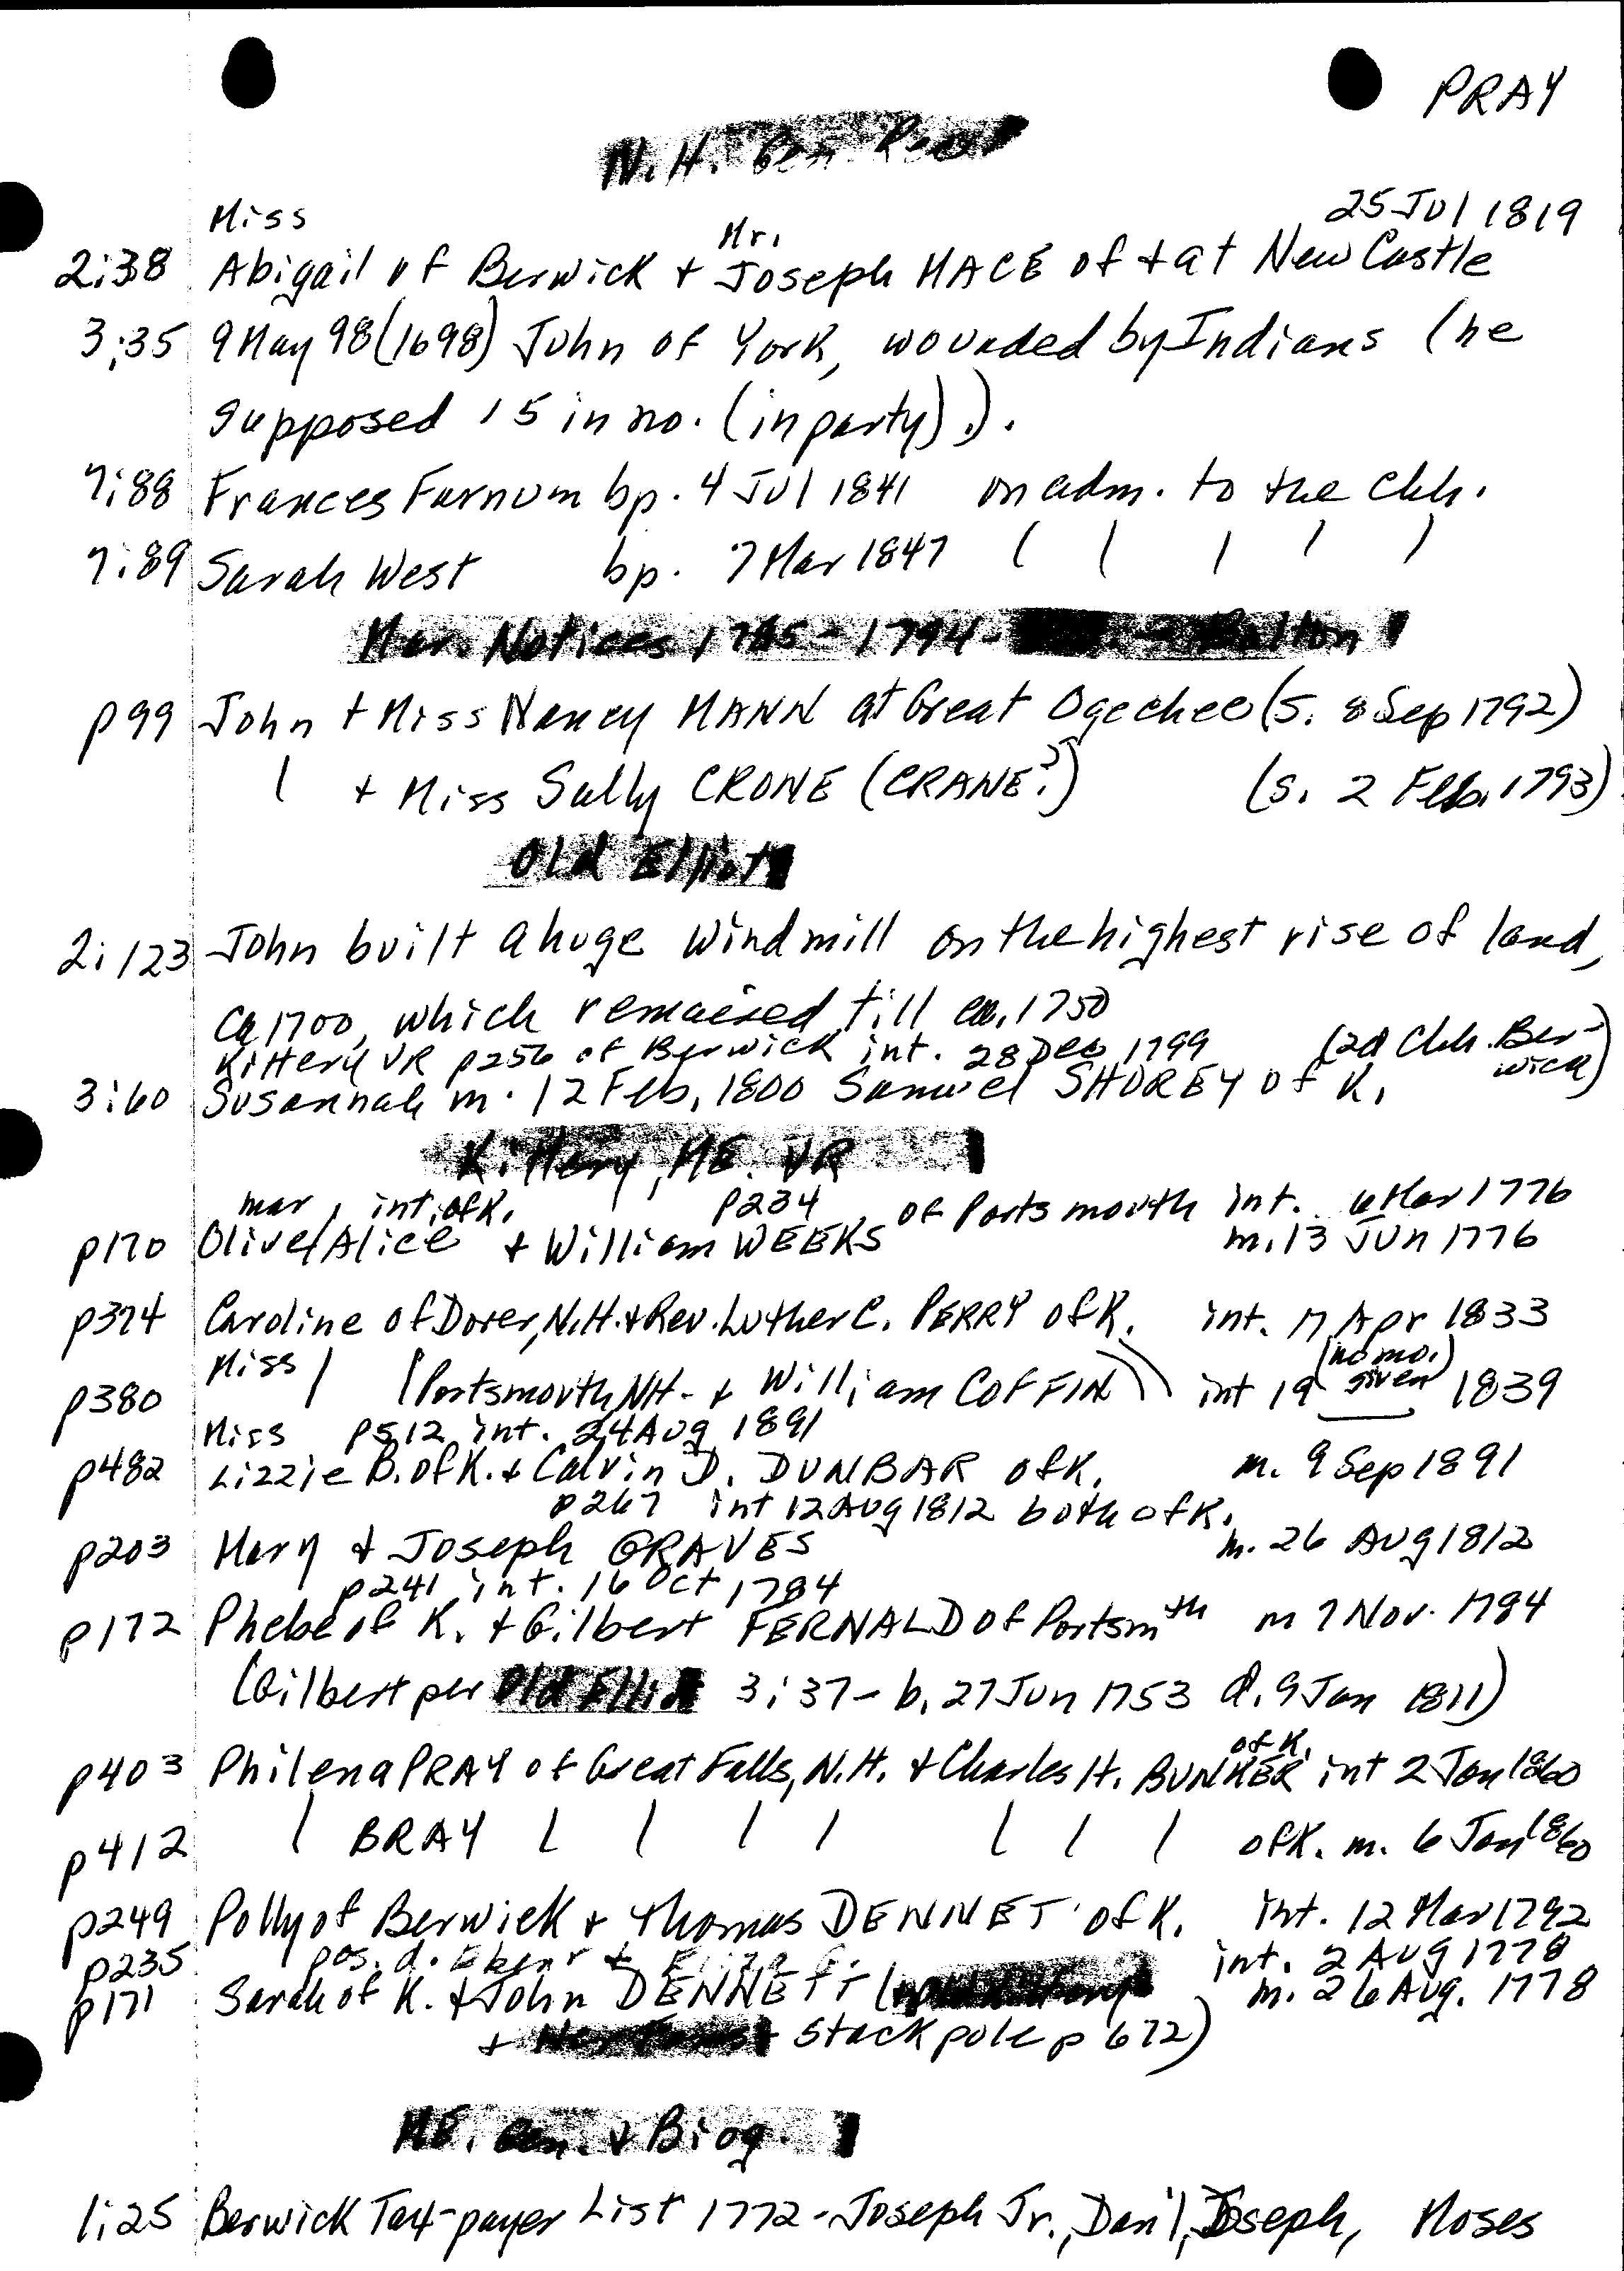 PRAY
N.H. Gen. Rec.
Miss 25 Jul 1819
Mr.
2:38 Abigail of Berwick + Joseph MACE of + at New Castle
3:35 9 May 98 (1698) John of York, wounded by Indians (he
supposed 15 in no. (in party).).
7:88 Frances Farnum bp. 4 Jul 1841 on adm. to the Chh.
7:89 Sarah West bp. 7 Mar 1847 | | | | |
Mar. Notices 1785-1794- Bolton
p99 John + Miss Nancy MANN at Great Ogechee (S. 8 Sep 1792)
| + Miss Sally CRONE (CRANE?) (S. 2 Feb. 1793)
Old Elliot
2:123 John built a huge windmill on the highest rise of land,
Ca 1700, which remained till ca. 1750
Kittery VR p256 of Berwick int. 28 Dec 1799 (2d Chh. Ber-
wick)
3:60 Susannah m. 12 Feb. 1800 Samuel SHOREY of K.
Kittery, ME. VR
mar int. of K. p234 of Portsmouth int. 6 Mar 1776
p170 Olive/Alice + William WEEKS m. 13 Jun 1776
p374 Caroline of Dover, N.H. + Rev. Luther C. PERRY of K. int. 17 Apr 1833
Miss | (no mo.)
p380 (Portsmouth, NH - + William COFFIN) int 19 given 1839
Miss p512 int. 24 Aug 1891
p482 Lizzie B. of K. + Calvin D. DUNBAR of K. m. 9 Sep 1891
p267 int 12 Aug 1812 both of K.
p203 Mary + Joseph GRAVES m. 26 Aug 1812
p241 int. 16 Oct 1784
p172 Phebe of K. + Gilbert FERNALD of Portsmth m 7 Nov. 1784
(Gilbert per Old Elliot 3:37 - b. 27 Jun 1753 d. 9 Jan 1811)
of K.
p403 Philena PRAY of Great Falls, N.H. + Charles H. BUNKER int 2 Jan 1860
p412 | BRAY | | | | | | | of K. m. 6 Jan 1860
p249 Polly of Berwick + Thomas DENNET of K. int. 12 Mar 1792
p235 pos. d. Ebenr + int. 2 Aug 1778
p171 Sarah of K. + John DENNETT ( m. 26 Aug. 1778
+ Stackpole p 672)
ME. Gen. + Biog.
1:25 Berwick Tax-payer List 1772 - Joseph Jr., Dan'l, Joseph, Moses